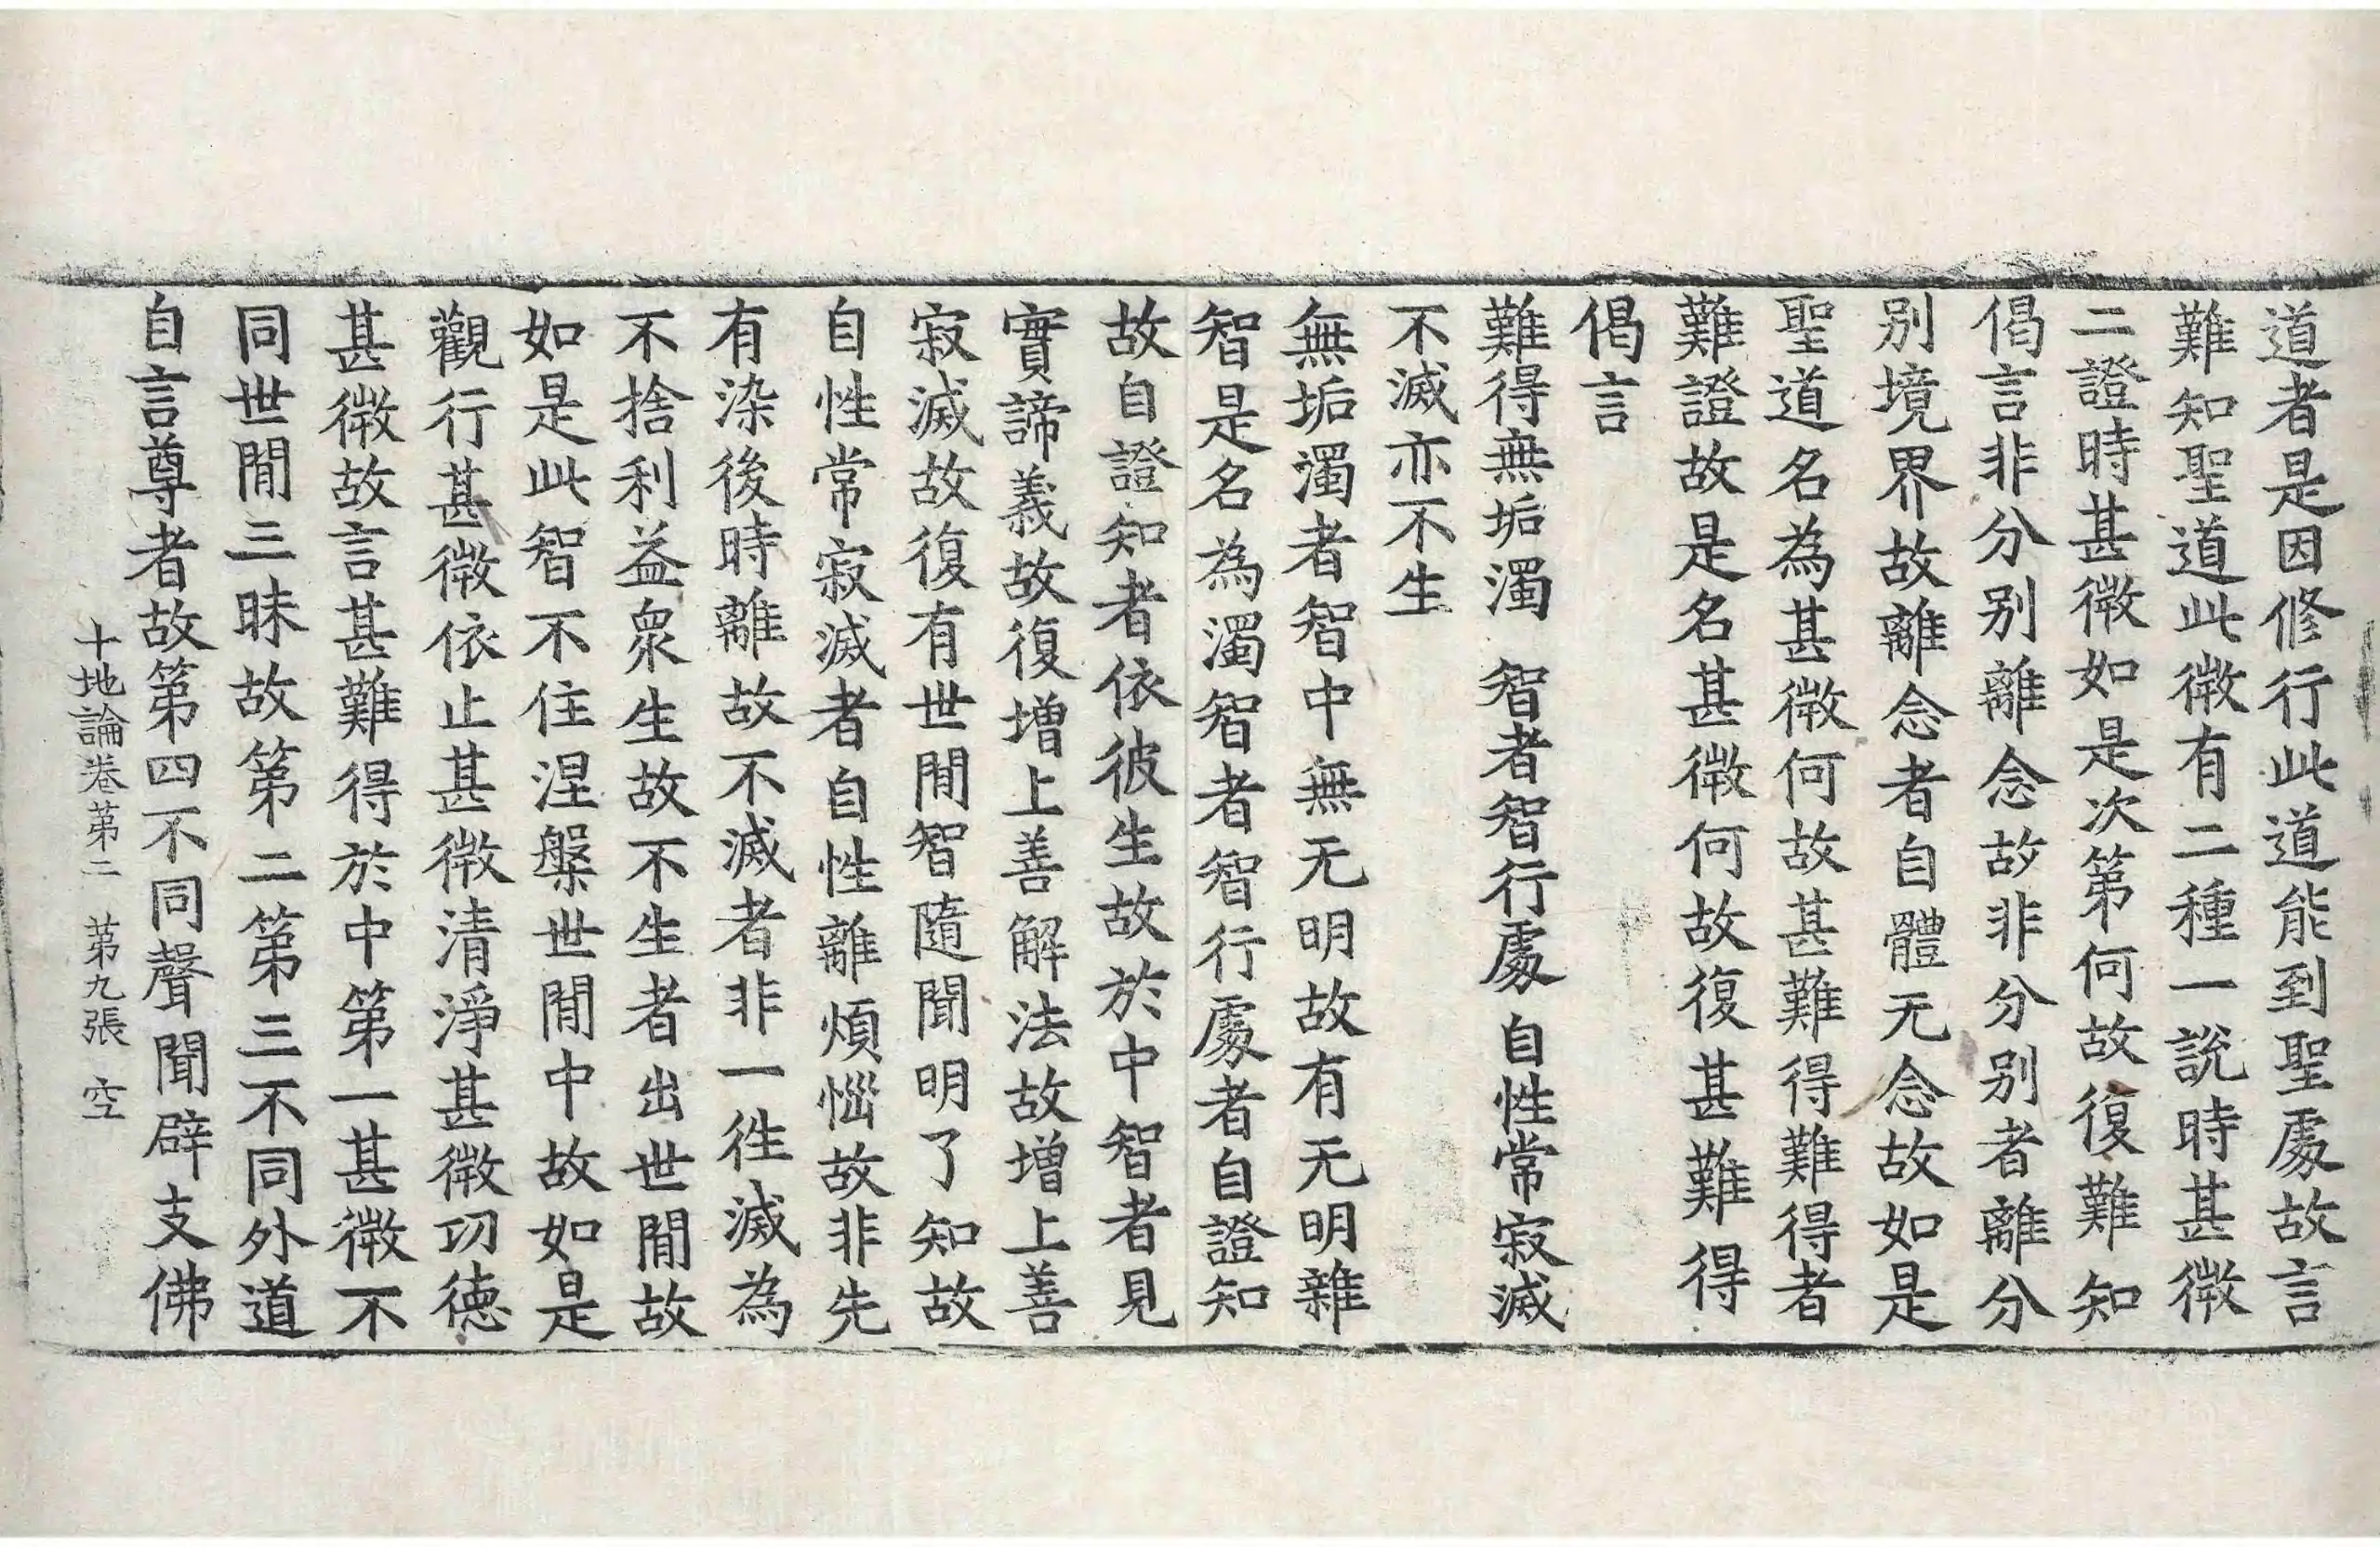 道者是因修行此道能到聖處故言
難知聖道此微有二種一說時甚微
二證時甚微如是次第何故復難知
偈言非分別離念故非分別者離分
別境界故離念者自體无念故如是
聖道名為甚微何故甚難得難得者
難證故是名甚微何故復甚難得
偈言
難得無垢濁 智者智行處 自性常寂滅
不滅亦不生
無垢濁者智中無无明故有无明雜
智是名為濁智者智行處者自證知
故自證知者依彼生故於中智者見
實諦義故復增上善解法故增上善
寂滅故復有世閒智隨聞明了知故
自性常寂滅者自性離煩惱故非先
有染後時離故不滅者非一徃滅為
不捨利益眾生故不生者出世閒故
如是此智不住涅槃世閒中故如是
觀行甚微依止甚微清淨甚微功德
甚微故言甚難得於中第一甚微不
同世閒三昧故第二第三不同外道
自言尊者故第四不同聲聞辟支佛
十地論卷第二 第九張 空